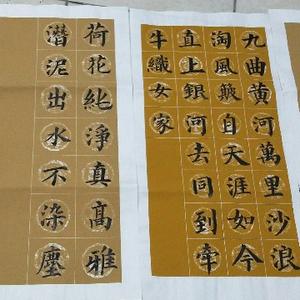 九曲黃河萬里沙浪
淘風簸自天涯如今
直上銀河去同到牽
牛織女家
荷花純淨真高雅
潛泥出水不染塵